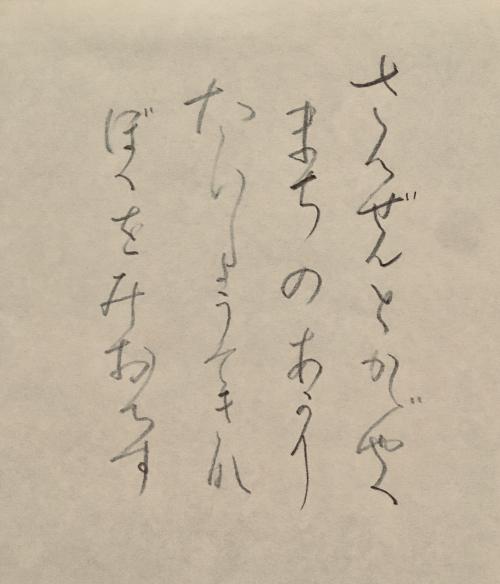 さんぜんとかゞやく
まちのあかり
たいしょうてきな
ぼくをみおろす